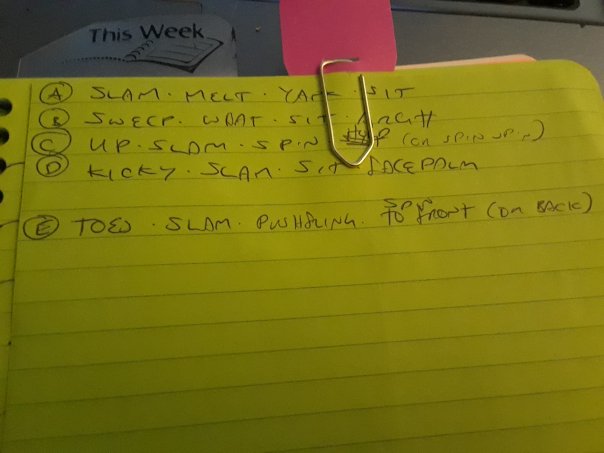 This Week
Ⓐ SLAM · MELT · YANK SIT
Ⓑ SWEEP · WHAT · SIT · ARGH
Ⓒ UP · SLAM · SPIN (OR SPIN SPIN)
Ⓓ KICKY · SLAM · SIT FACEPALM
SPIN
Ⓔ TOES · SLAM · PUSHSLING · TO FRONT (ON BACK)